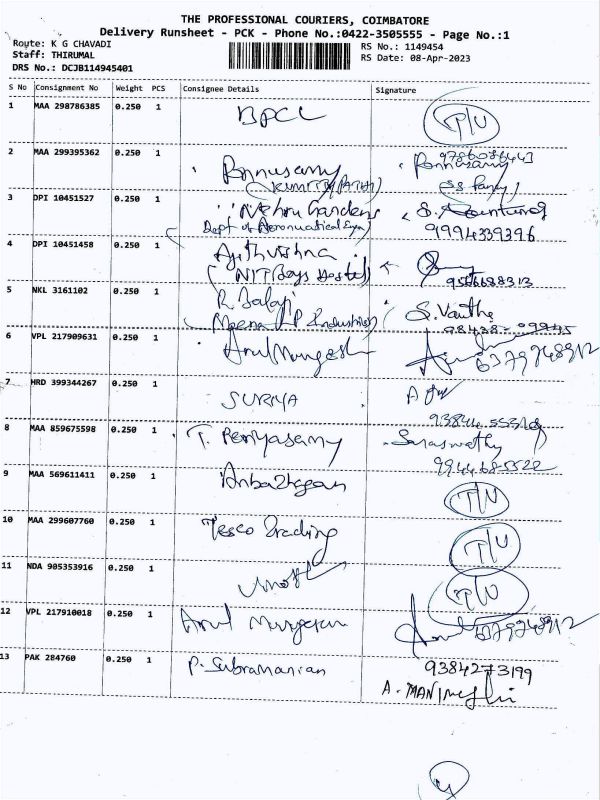 THE PROFESSIONAL COURIERS, COIMBATORE
Delivery Runsheet - PCK - Phone No.:0422-3505555 - Page No.:1
Route: K G CHAVADI
Staff: THIRUMAL
DRS No.: DCJB114945401
RS No.: 1149454
RS Date: 08-Apr-2023
S No Consignment No Weight PCS Consignee Details Signature
1 MAA 298786385 0.250 1 BPCL T/U
2 MAA 299395362 0.250 1 Ponnusamy 9786086443
Ponnusamy
3 DPI 10451527 0.250 1 Nehru Gardens
Dept of Aeronautical 9994339396
4 DPI 10451458 0.250 1 Ajithvishna
(NIT Boys Hostel)
5 NKL 3161102 0.250 1 R. Balaji S. Vanitha
6 VPL 217909631 0.250 1 Arul Murugesh 6379248912
7 HRD 399344267 0.250 1 SURIYA
8 MAA 859675598 0.250 1 T. Periyasamy Saraswathy
9944685522
9 MAA 569611411 0.250 1 Anbazhagan T/U
10 MAA 299607760 0.250 1 Tesco Trading T/U
11 NDA 905353916 0.250 1 T/U
12 VPL 217910018 0.250 1 Arul Murugesan 6379248912
13 PAK 284760 0.250 1 P. Subramanian 9384273199